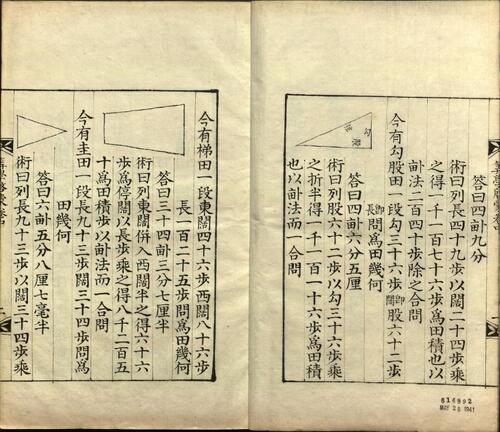 答曰四畝九分
術曰列長四十九步以闊二十四步乘
之得一千一百七十六步爲田積也以
畝法二百四十步除之合問
今有勾股田一段勾三十六步卽闊股六十二步
卽長問爲田幾何
勾
股
弦
答曰四畝六分五厘
術曰列股六十二步以勾三十六步乘
之折半得一千一百一十六步爲田積
也以畝法而一合問
616892
MAY 26 1941
今有梯田一段東闊四十六步西闊八十六步
長一百二十五步問爲田幾何
答曰三十四畝三分七厘半
術曰列東闊併入西闊半之得六十六
步爲停闊以長步乘之得八千二百五
十爲田積步以畝法而一合問
今有圭田一段長九十三步闊三十四步問爲
田幾何
答曰六畝五分八厘七毫半
術曰列長九十三步以闊三十四步乘